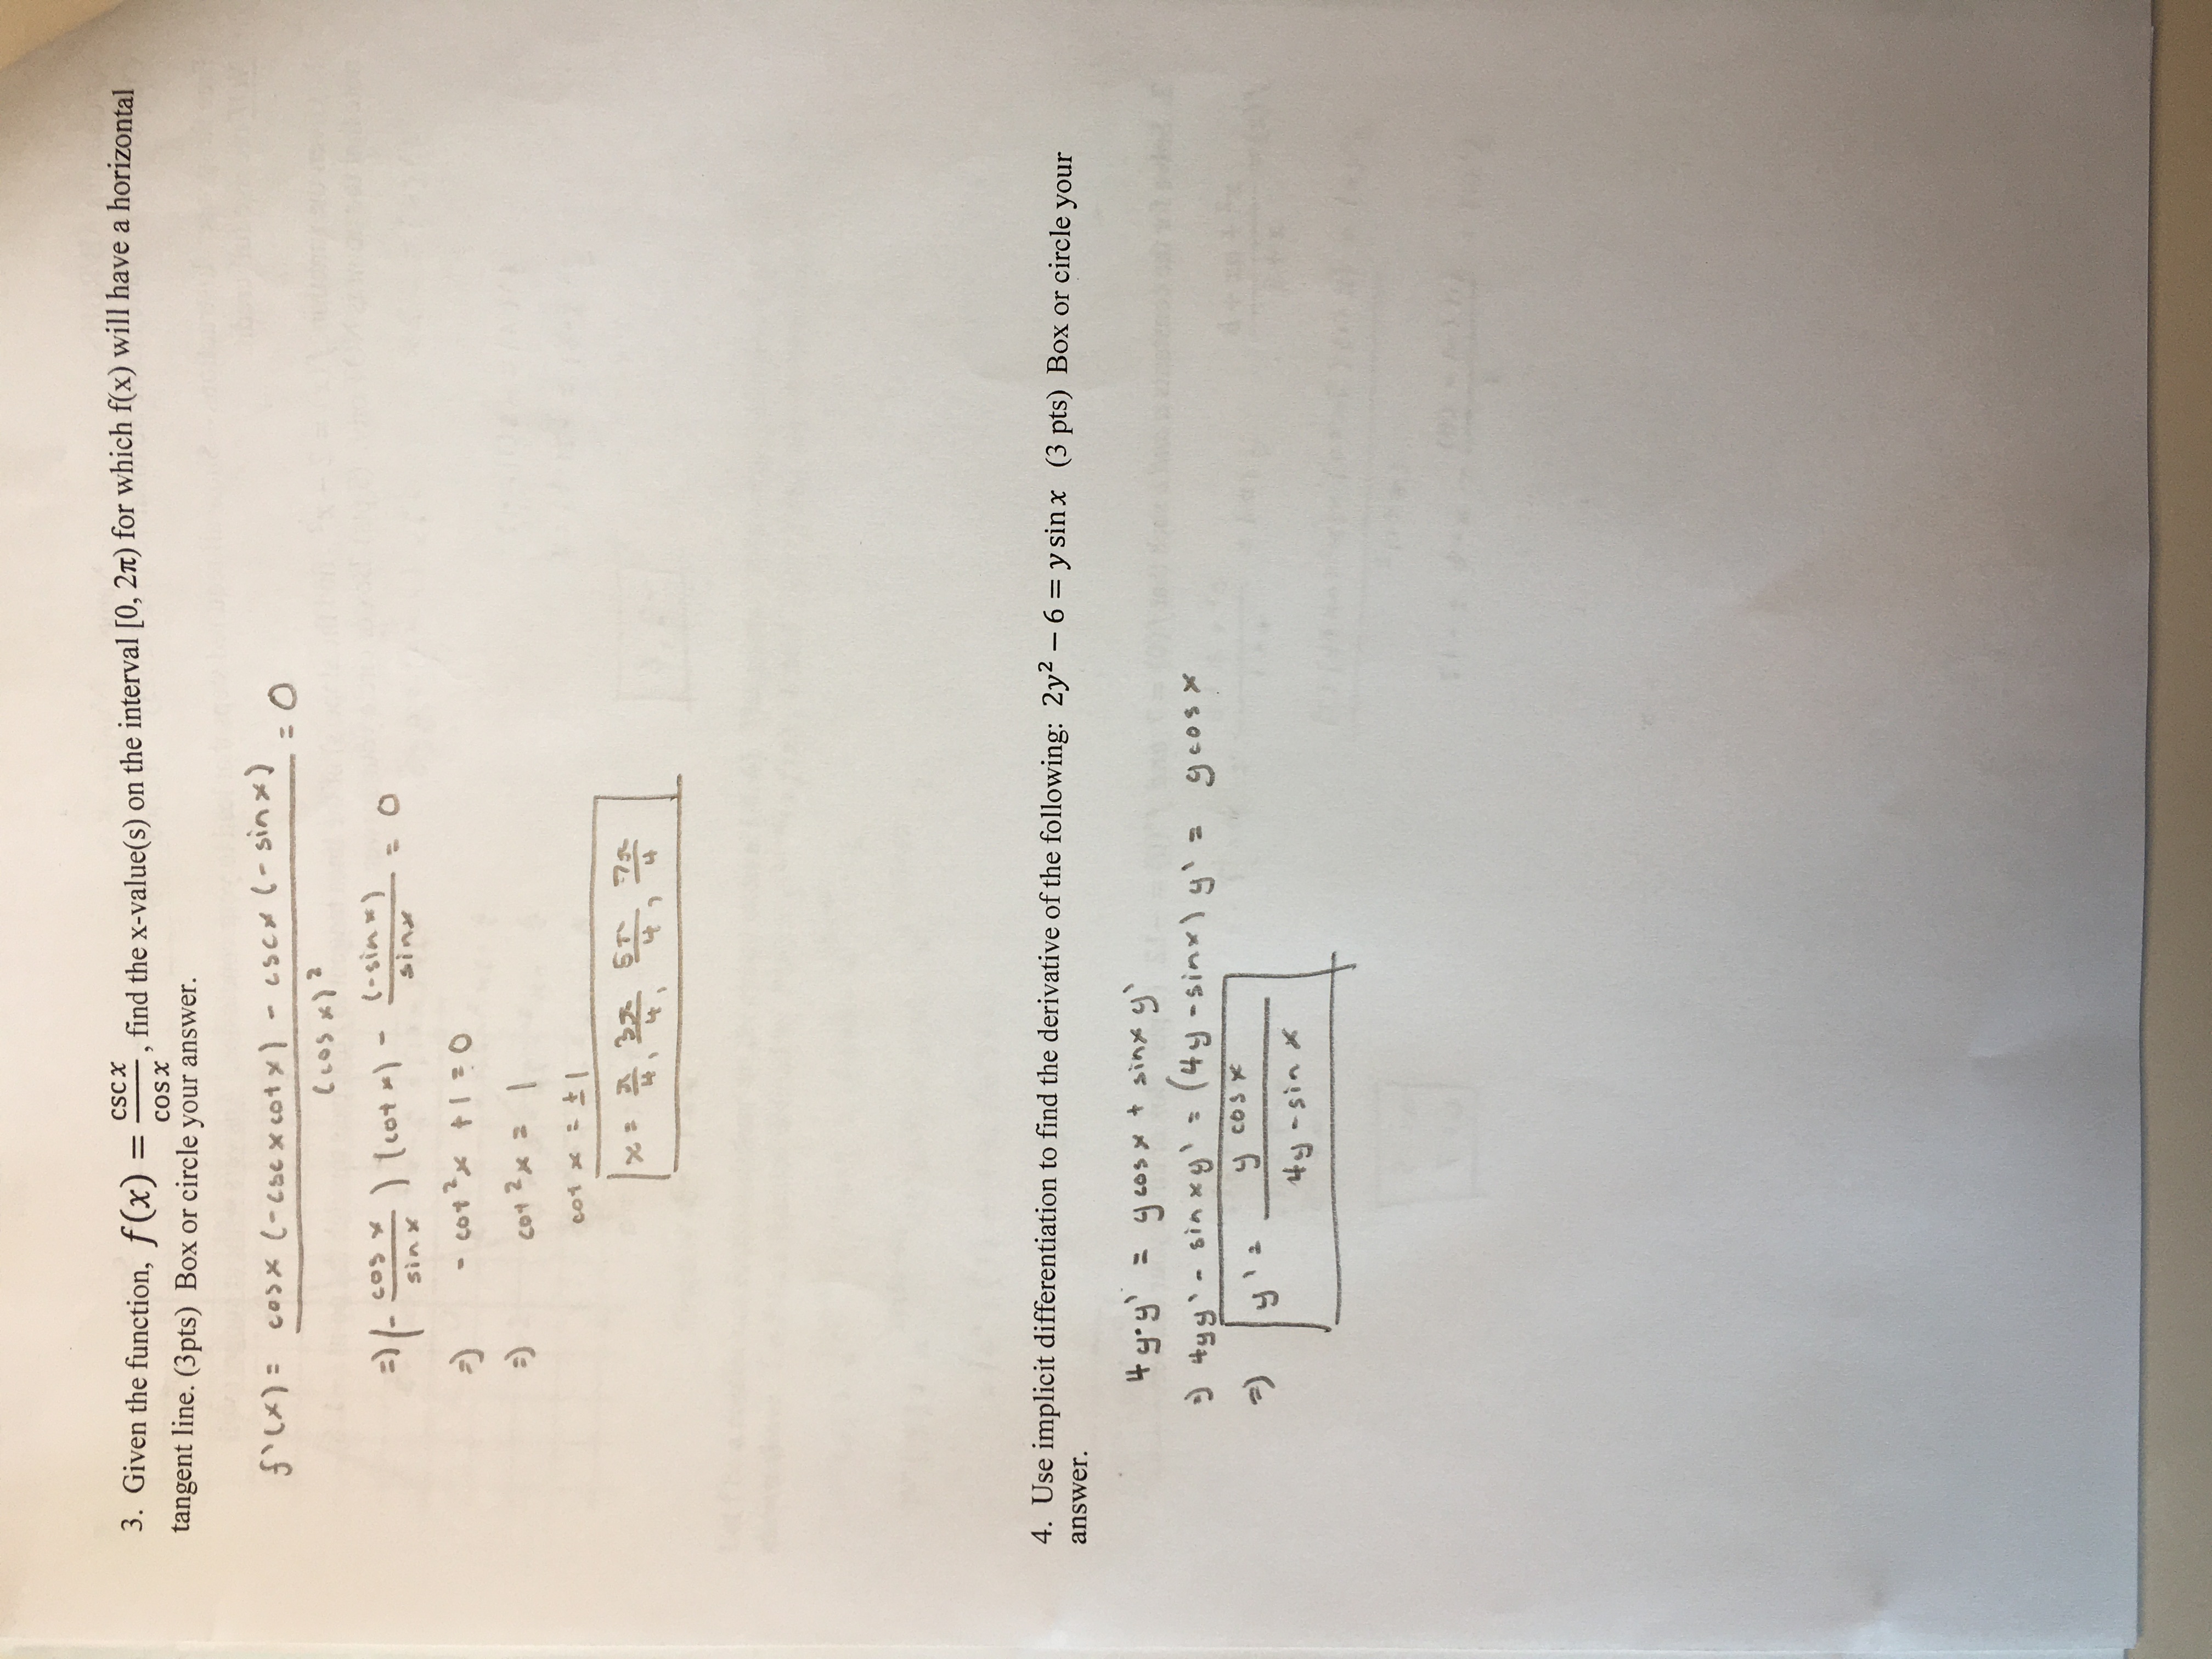 3. Given the function, f(x) = csc x / cos x , find the x-value(s) on the interval [0, 2π) for which f(x) will have a horizontal
tangent line. (3pts) Box or circle your answer.
f'(x) = cosx (-cscxcotx) - cscx (-sinx) / (cosx)² = 0
=> (- cosx / sinx) (cotx) - (-sinx) / sinx = 0
=> - cot²x + 1 = 0
=> cot²x = 1
cot x = ±1
x = π/4, 3π/4, 5π/4, 7π/4
4. Use implicit differentiation to find the derivative of the following: 2y² − 6 = y sin x (3 pts) Box or circle your
answer.
4y·y' = ycosx + sinx y'
=> 4yy' - sinxy' = (4y - sinx) y' = ycosx
=> y' = y cosx / 4y - sin x